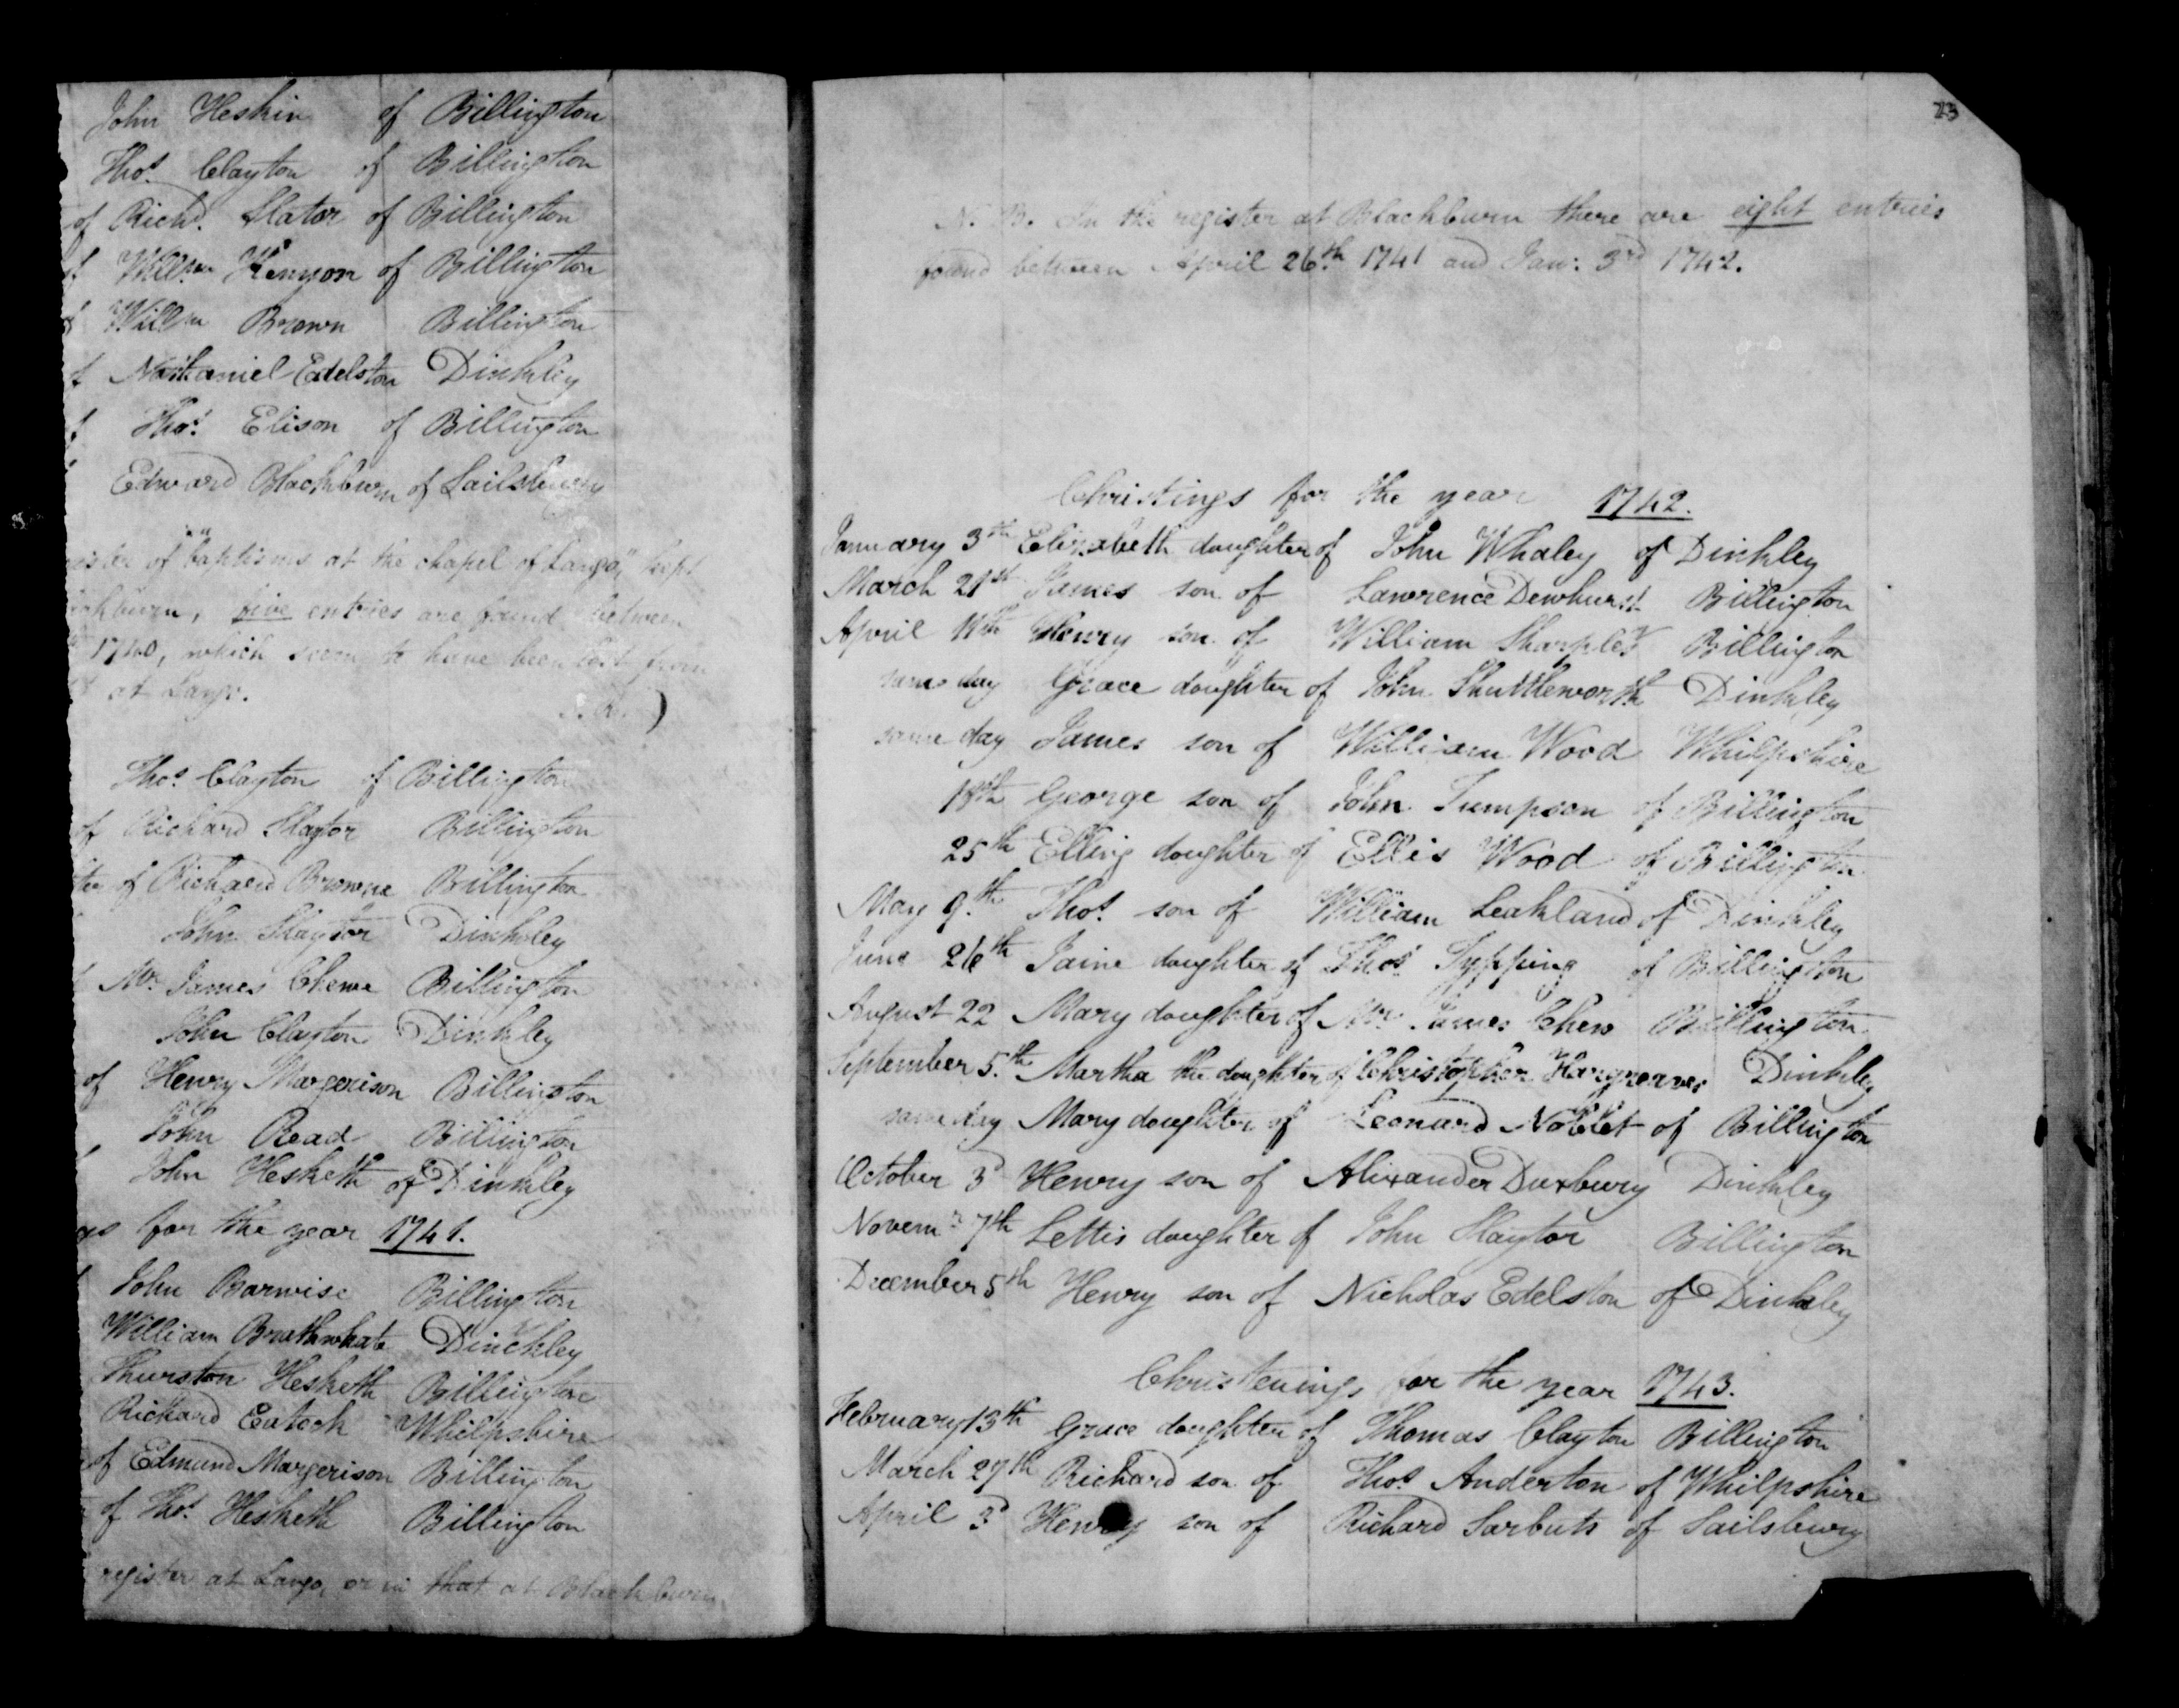 John Heskin of Billington
Thos. Clayton of Billington
of Richd. Slator of Billington
Willm Kenyon of Billington
Willm Brown Billington
Nathaniel Edelston Dinkley
Thos. Elison of Billington
Edward Blackburn of Sailsbury
of baptisms at the chapel of Lango," kept
five entries are found between
1740, which seem to have been lost from
at Lango.
Thos. Clayton of Billington
of Richard Slaytor Billington
of Richard Browne Billington
John Slaytor Dinkley
Mr. James Chewe Billington
John Clayton Dinkley
of Henry Margerison Billington
John Read Billington
John Hesketh of Dinkley
for the year 1741.
John Barwise Billington
William Brathwhate Dinckley
Thurston Hesketh Billington
Richard Eatock Whilpshire
of Edmund Margerison Billington
of Thos. Hesketh Billington
register at Lango, or in that at Blackburn.
23
N. B. In the register at Blackburn there are eight entries
found between April 26th. 1741 and Jan: 3rd 1742.
Christings for the year 1742.
January 3rd Elizabeth daughter of John Whaley of Dinkley
March 21st James son of Lawrence Dewhurst Billington
April 11th Henry son of William Sharples Billington
same day Grace daughter of John Shuttleworth Dinkley
same day James son of William Wood Whilpshire
18th George son of John Tumpson of Billington
25th Elling daughter of Ellis Wood of Billington
May 9.th Thos. son of William Leakland of Dinkley
June 26th Jaine daughter of Thos. Typping of Billington
August 22 Mary daughter of Mr. James Chew Billington
September 5.th Martha the daughter of Christopher Hargreaves Dinkley
same day Mary daughter of Leonard Noblet of Billington
October 3d Henry son of Alixander Duxbury Dinkley
Novemr. 7th Lettis daughter of John Slaytor Billington
December 5th Henry son of Nicholas Edelston of Dinkley
Christenings for the year 1743.
February 13th Grace daughter of Thomas Clayton Billington
March 27th Richard son of Thos. Anderton of Whilpshire
April 3d Henry son of Richard Sarbuts of Sailsbury